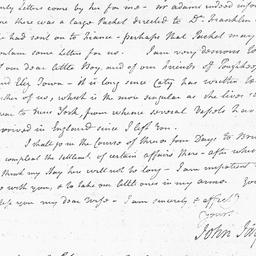 only Letters come by her for me - Mr Adams informed
me there was a large Packet directed to Dr. Franklin
he had sent on to France - perhaps that Packet may
contain some Letter for us. I am very desirous to
of our dear little Boy, and of our Friends at Poughkeep
and Eliz. Town - It is long since Caty has written to
either of us, which is the more singular as she lives
near to New York, from whence several Vessels have
arrived in England since I left You.
I shall go in the Course of three or four Days to Bri
compleat the settlemt. of certain affairs there - after which
think my Stay here will not be long - I am impatient
to be with you, & to take our little ones in my arms.
bless you my dear wife - I am sincerely & affectly
Yours.
John Jay